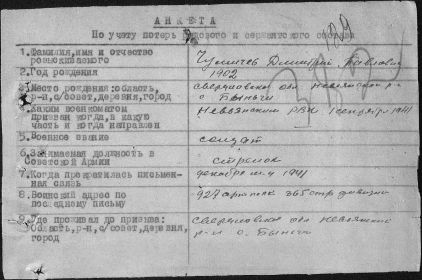 АНКЕТА
По учету потерь рядового и сержантского состава
1.Фамилия,имя и отчество
розыскиваемого
Дмитрий Павлович
2.Год рождения
1902
3.Место рождения:область,
р-н,с/совет,деревня,город
Свердловская обл Невьянский р-н
с. Быньги
4.Каким военкоматом
призван когда,в какую
часть и когда направлен
Невьянским РВК 1 сентября 1941
5.Военное звание
солдат
6.Занимаемая должность в
Советской Армии
стрелок
7.Когда прекратилась письмен-
ная связь
декабрь м-ц 1941
8.Воинский адрес по
последнему письму
927 артполк 365 стр дивизии
9.Где проживал до призыва:
Область,р-н,с/совет,деревня,
город
Свердловское обл Невьянский
р-н с. Быньги